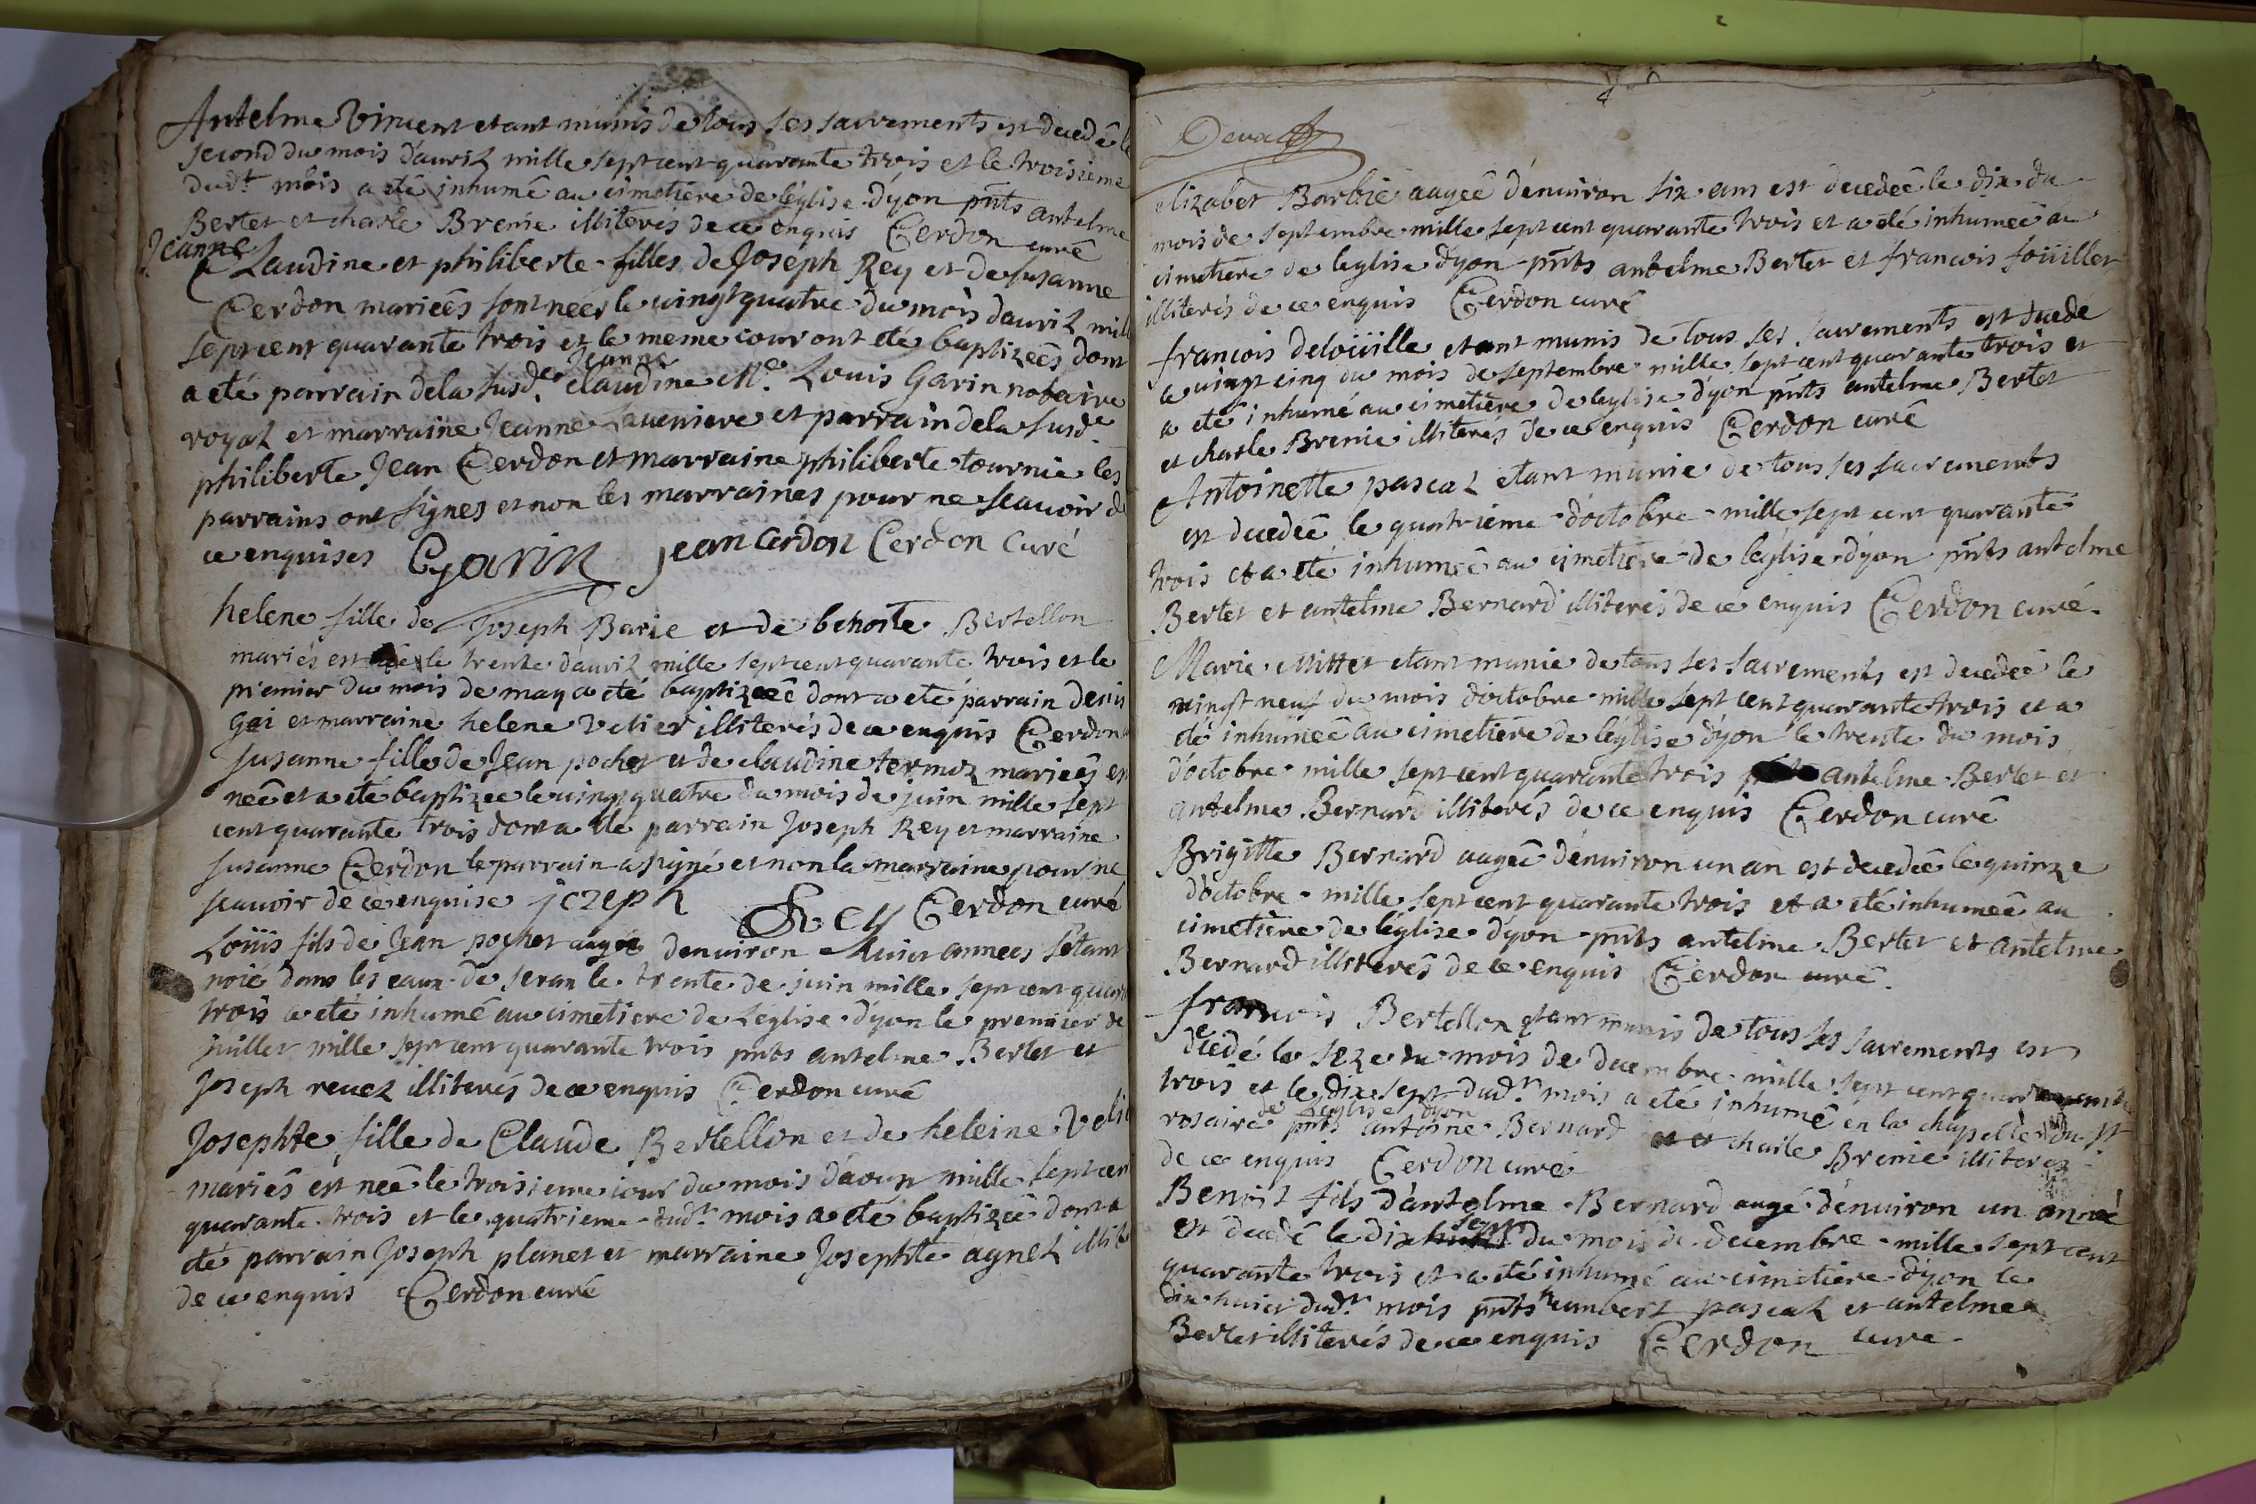 Antelme Vincent etant munis de tous ses sacrements est decedé le
second du mois d'avril mille sept cent quarante trois et le troisieme
dudt mois a eté inhumé au cimetiere de l'église d'yon pnts antelme
Bertet et charle Brenie illiterés de ce enquis Cerdon curé
Jeanne
Claudine et philiberte filles de Joseph Rey et de Susanne
Cerdon mariées sont nées le vingt quatre du mois d'avril mille
sept cent quarante trois et le meme jour ont eté baptizeés dont
a eté parrain de la susde Jeanne claudine Me Louis Garin notaire
royal et marraine Jeanne Laveniere et parrain de la susde
philiberte Jean Cerdon et marraine philiberte tournie les
parrains ont signes et non les marraines pour ne scavoir de
ce enquises Garin jean Cerdon Cerdon Curé
helene fille de Joseph Barie et de benoite Bertellon
mariés est née le trente d'avril mille sept cent quarante trois et le
premier du mois de may a eté baptizeé dont a eté parrain denis
Gai et marraine helene Velier illiterés de ce enquis Cerdon
Susanne fille de Jean pochet et de claudine termoz marieés est
neé et a eté baptizee le vingt quatre du mois de juin mille sept
cent quarante trois dont a eté parrain Joseph Rey et marraine
Susanne Cerdon le parrain a signé et non la marraine pour ne
scavoir de ce enquise jozeph Rey Cerdon curé
Louis fils de Jean pochet augé d'environ huict années s'etant
noié dans les eaux de seran le trente de juin mille sept cent quarante
trois a eté inhumé au cimetiere de l'église d'yon le premier de
juillet mille sept cent quarante trois pnts antelme Bertet et
Joseph revel illiterés de ce enquis Cerdon curé
Josephte fille de Claude Bertellon et de heleine Velier
mariés est neé le troisieme jour du mois d'aoust mille sept cent
quarante trois et le quatrieme dudt mois a eté baptizeé dont a
eté parrain Joseph planet et marraine Josephte agnel illit
de ce enquis Cerdon curé
elizabet Barbié augeé d'environ six ans est decedeé le dix du
mois de septembre mille sept cent quarante trois et a eté inhumeé au
cimetiere de l'eglise d'yon pnts antelme Bertet et francois foüiller
illiterés de ce enquis Cerdon curé
francois deloüille etant munis de tous ses sacrements est decedé
le vingt cinq du mois de septembre mille sept cent quarante trois et
a eté inhumé au cimetière de l'eglise d'yon pnts antelme Bertet
et charle Brenie illiterés de ce enquis Cerdon curé
Antoinette pascal etant munie de tous ses sacrements
est decedeé le quatrieme d'octobre mille sept cent quarante
trois et a eté inhumeé au cimetiere de l'église d'yon pnts antelme
Bertet et antelme Bernard illiterés de ce enquis Cerdon curé
Marie Mittet etant munie de tous ses sacrements est decedeé le
vingt neuf du mois d'octobre mille sept cent quarante trois et a
eté inhumeé au cimetiere de l'église d'yon le trente du mois
d'octobre mille sept cent quarante trois antelme Bertet et
antelme Bernard illiterés de ce enquis Cerdon curé
Brigitte Bernard augeé d'environ un an est decedeé le quinze
d'octobre mille sept cent quarante trois et a eté inhumeé au
cimetiere de l'église d'yon pnts antelme Bertet et antelme
Bernard illiterés de ce enquis Cerdon curé.
francois Bertellon etant munis de tous ses sacrements est
decedé le seze du mois de decembre mille sept cent quarante
trois et le dix sept dudt mois a eté inhumé en la chapelle du st
rosaire de l'eglise d'yon pnts antoine Bernard et charle Brenie illiteres
de ce enquis Cerdon curé
Benoit fils d'antelme Bernard augé d'environ un année
est decedé le dix sept du mois de decembre mille sept cent
quarante trois et a eté inhumé au cimetiere d'yon le
dix huict dudt mois pnts humbert pascal et antelme
Bertet illiterés de ce enquis Cerdon curé